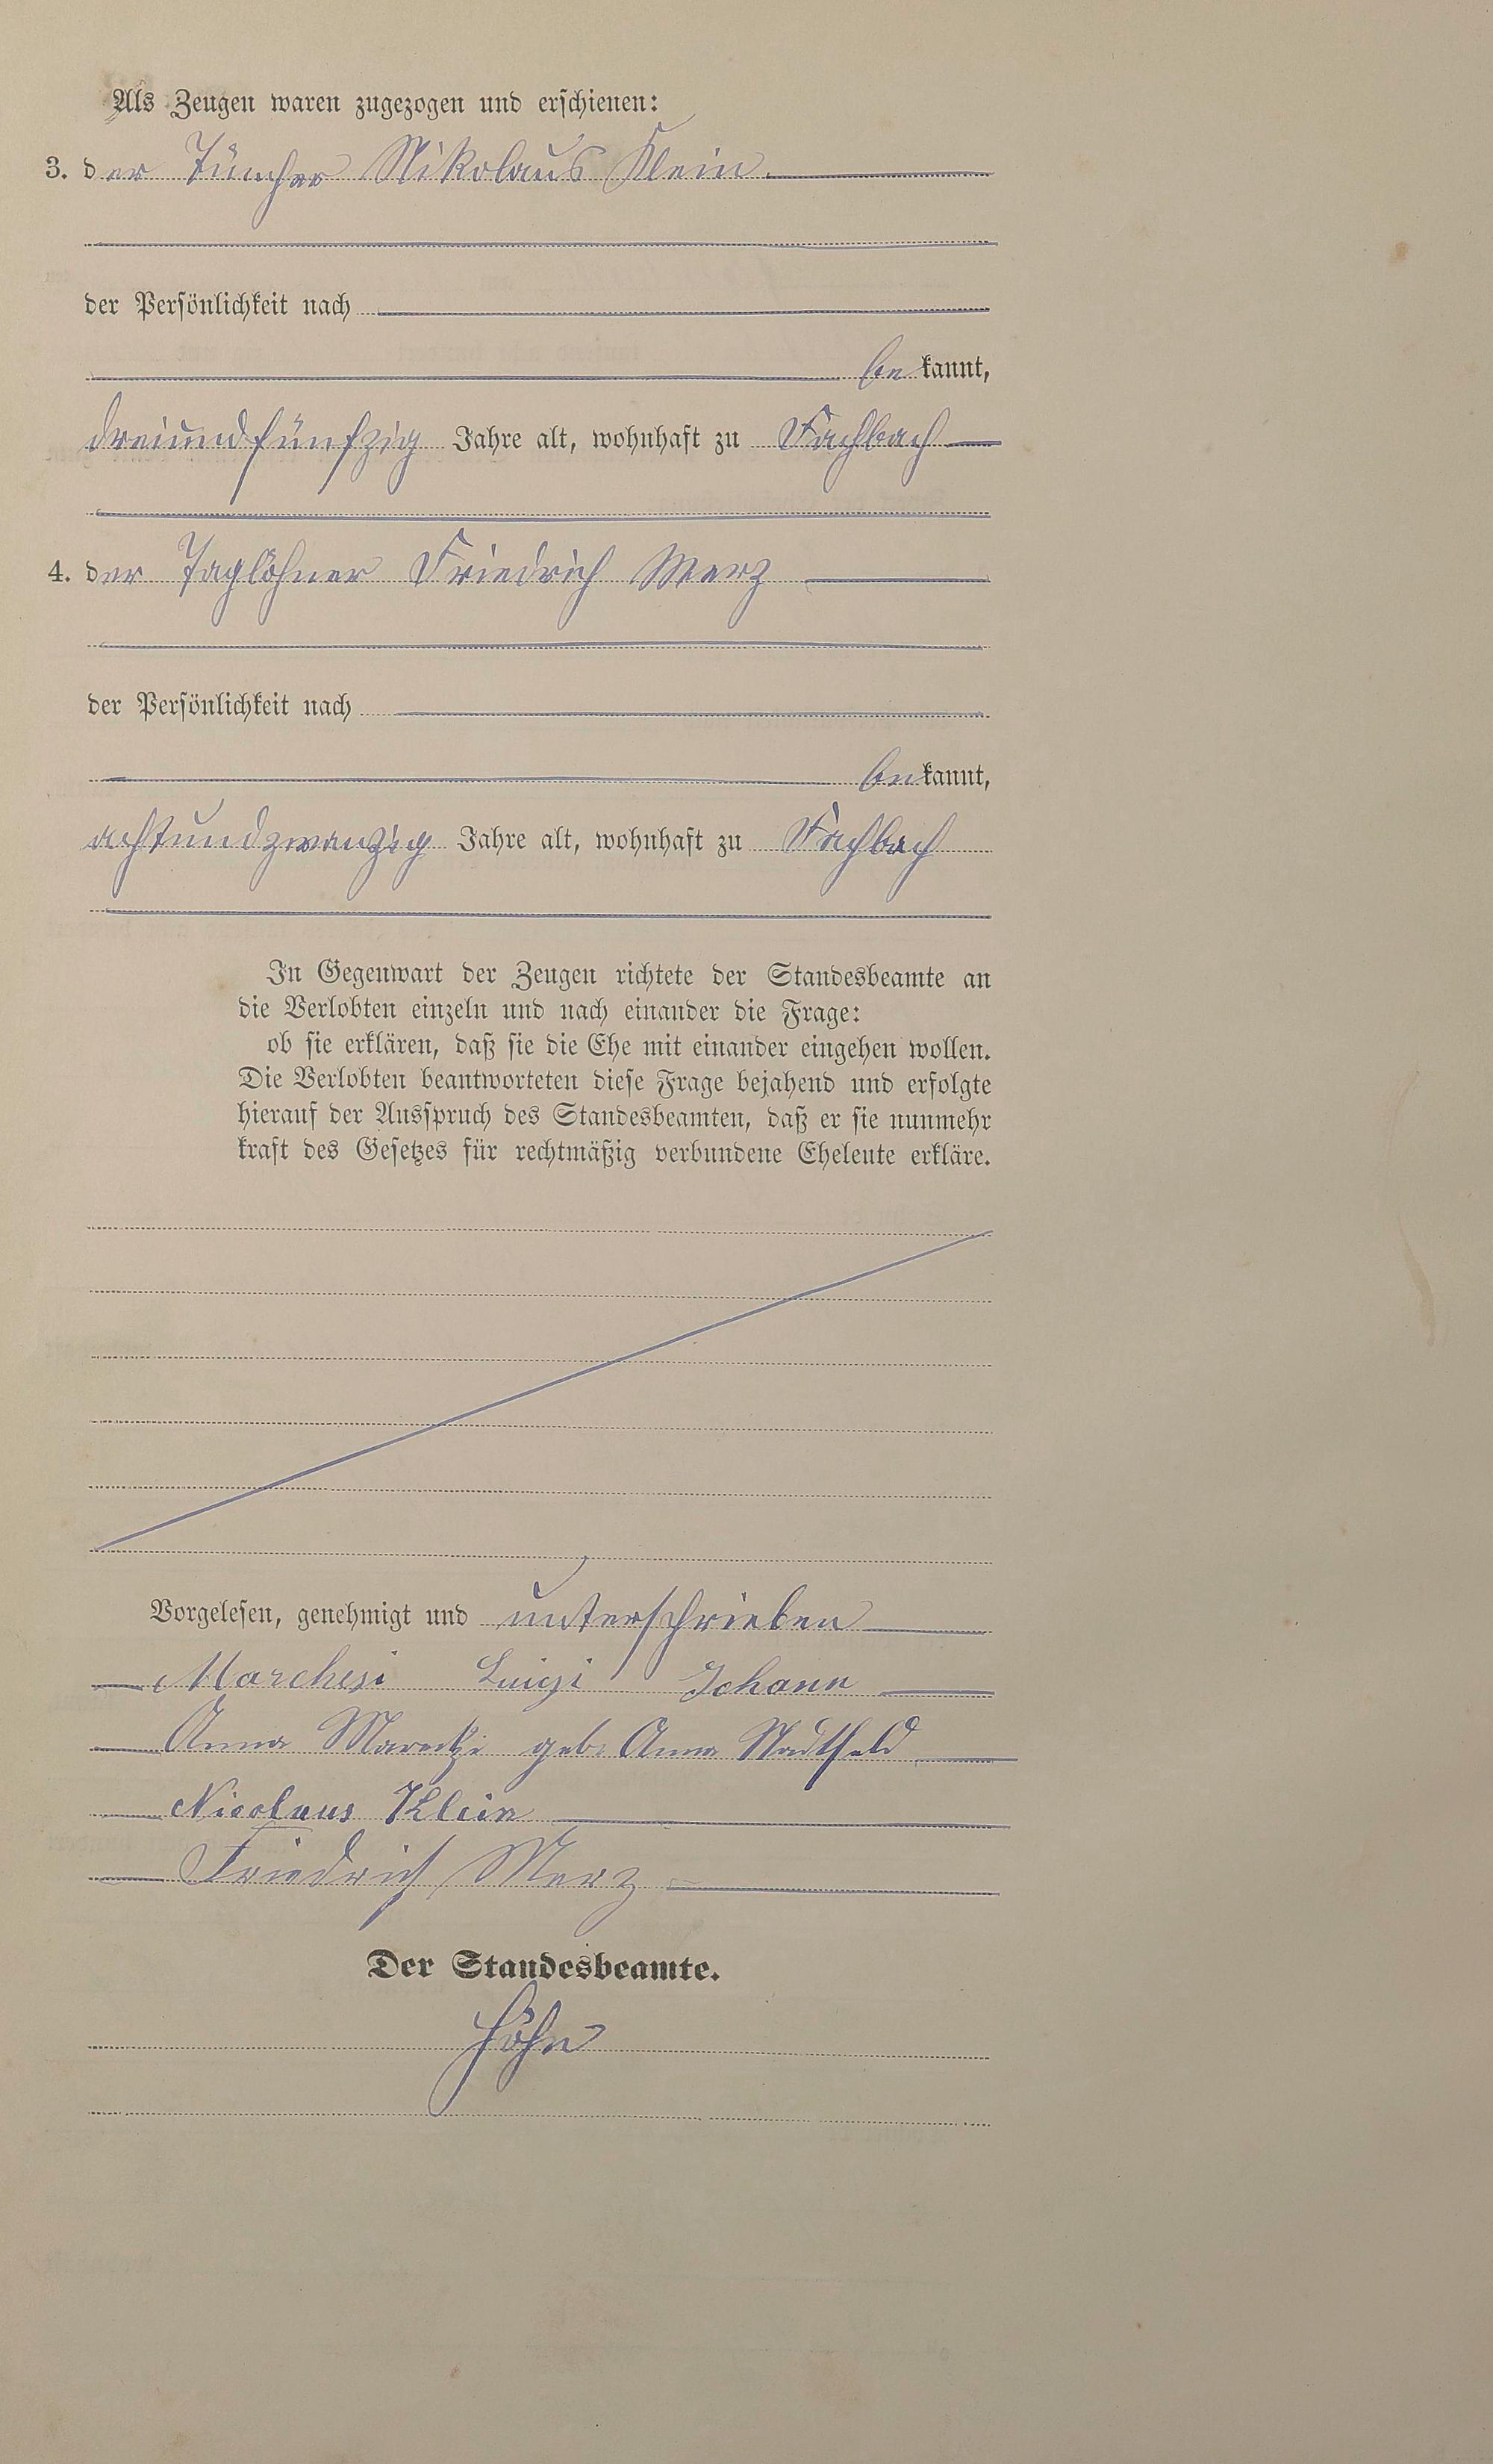 Als Zeugen waren zugezogen und erschienen:
3. der Tüncher Nikolaus Klein
der Persönlichkeit nach
bekannt,
dreiundfünfzig Jahre alt, wohnhaft zu Fachbach
4. der Taglöhner Friedrich Merz
der Persönlichkeit nach
bekannt,
achtundzwanzig Jahre alt, wohnhaft zu Fachbach
In Gegenwart der Zeugen richtete der Standesbeamte an
die Verlobten einzeln und nach einander die Frage:
ob sie erklären, daß sie die Ehe mit einander eingehen wollen.
Die Verlobten beantworteten diese Frage bejahend und erfolgte
hierauf der Ausspruch des Standesbeamten, daß er sie nunmehr
kraft des Gesetzes für rechtmäßig verbundene Eheleute erkläre.
Vorgelesen, genehmigt und unterschrieben
Marchesi Luigi Johann
Anna geb. Anna Stadtfeld
Nicolaus Klein
Friedrich Merz
Der Standesbeamte.
Höhn